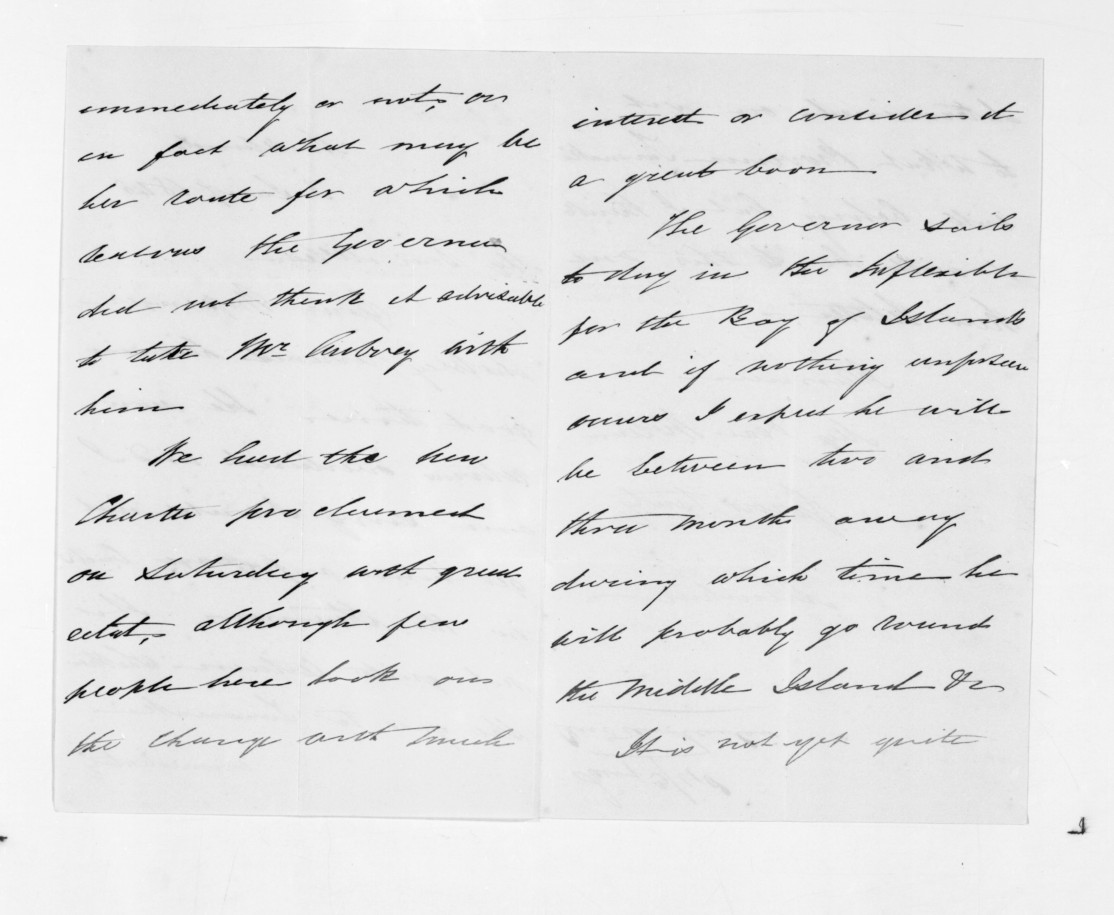 immediately or not, or
in fact what may be
her route for which
reasons the Governor
did not think it advisable
to take Mr. Aubrey with
him
We heard the new
Charter proclaimed
on Saturday with great
eclat, although few
people here look on
the change with much
interest or consider it
a great boon
The Governor sails
to day in the Inflexible
for the Bay of Islands
and if nothing unforseen
occurs I expect he will
be between two and
three months away
during which time he
will probably go round
the Middle Island &c
It is not yet quite